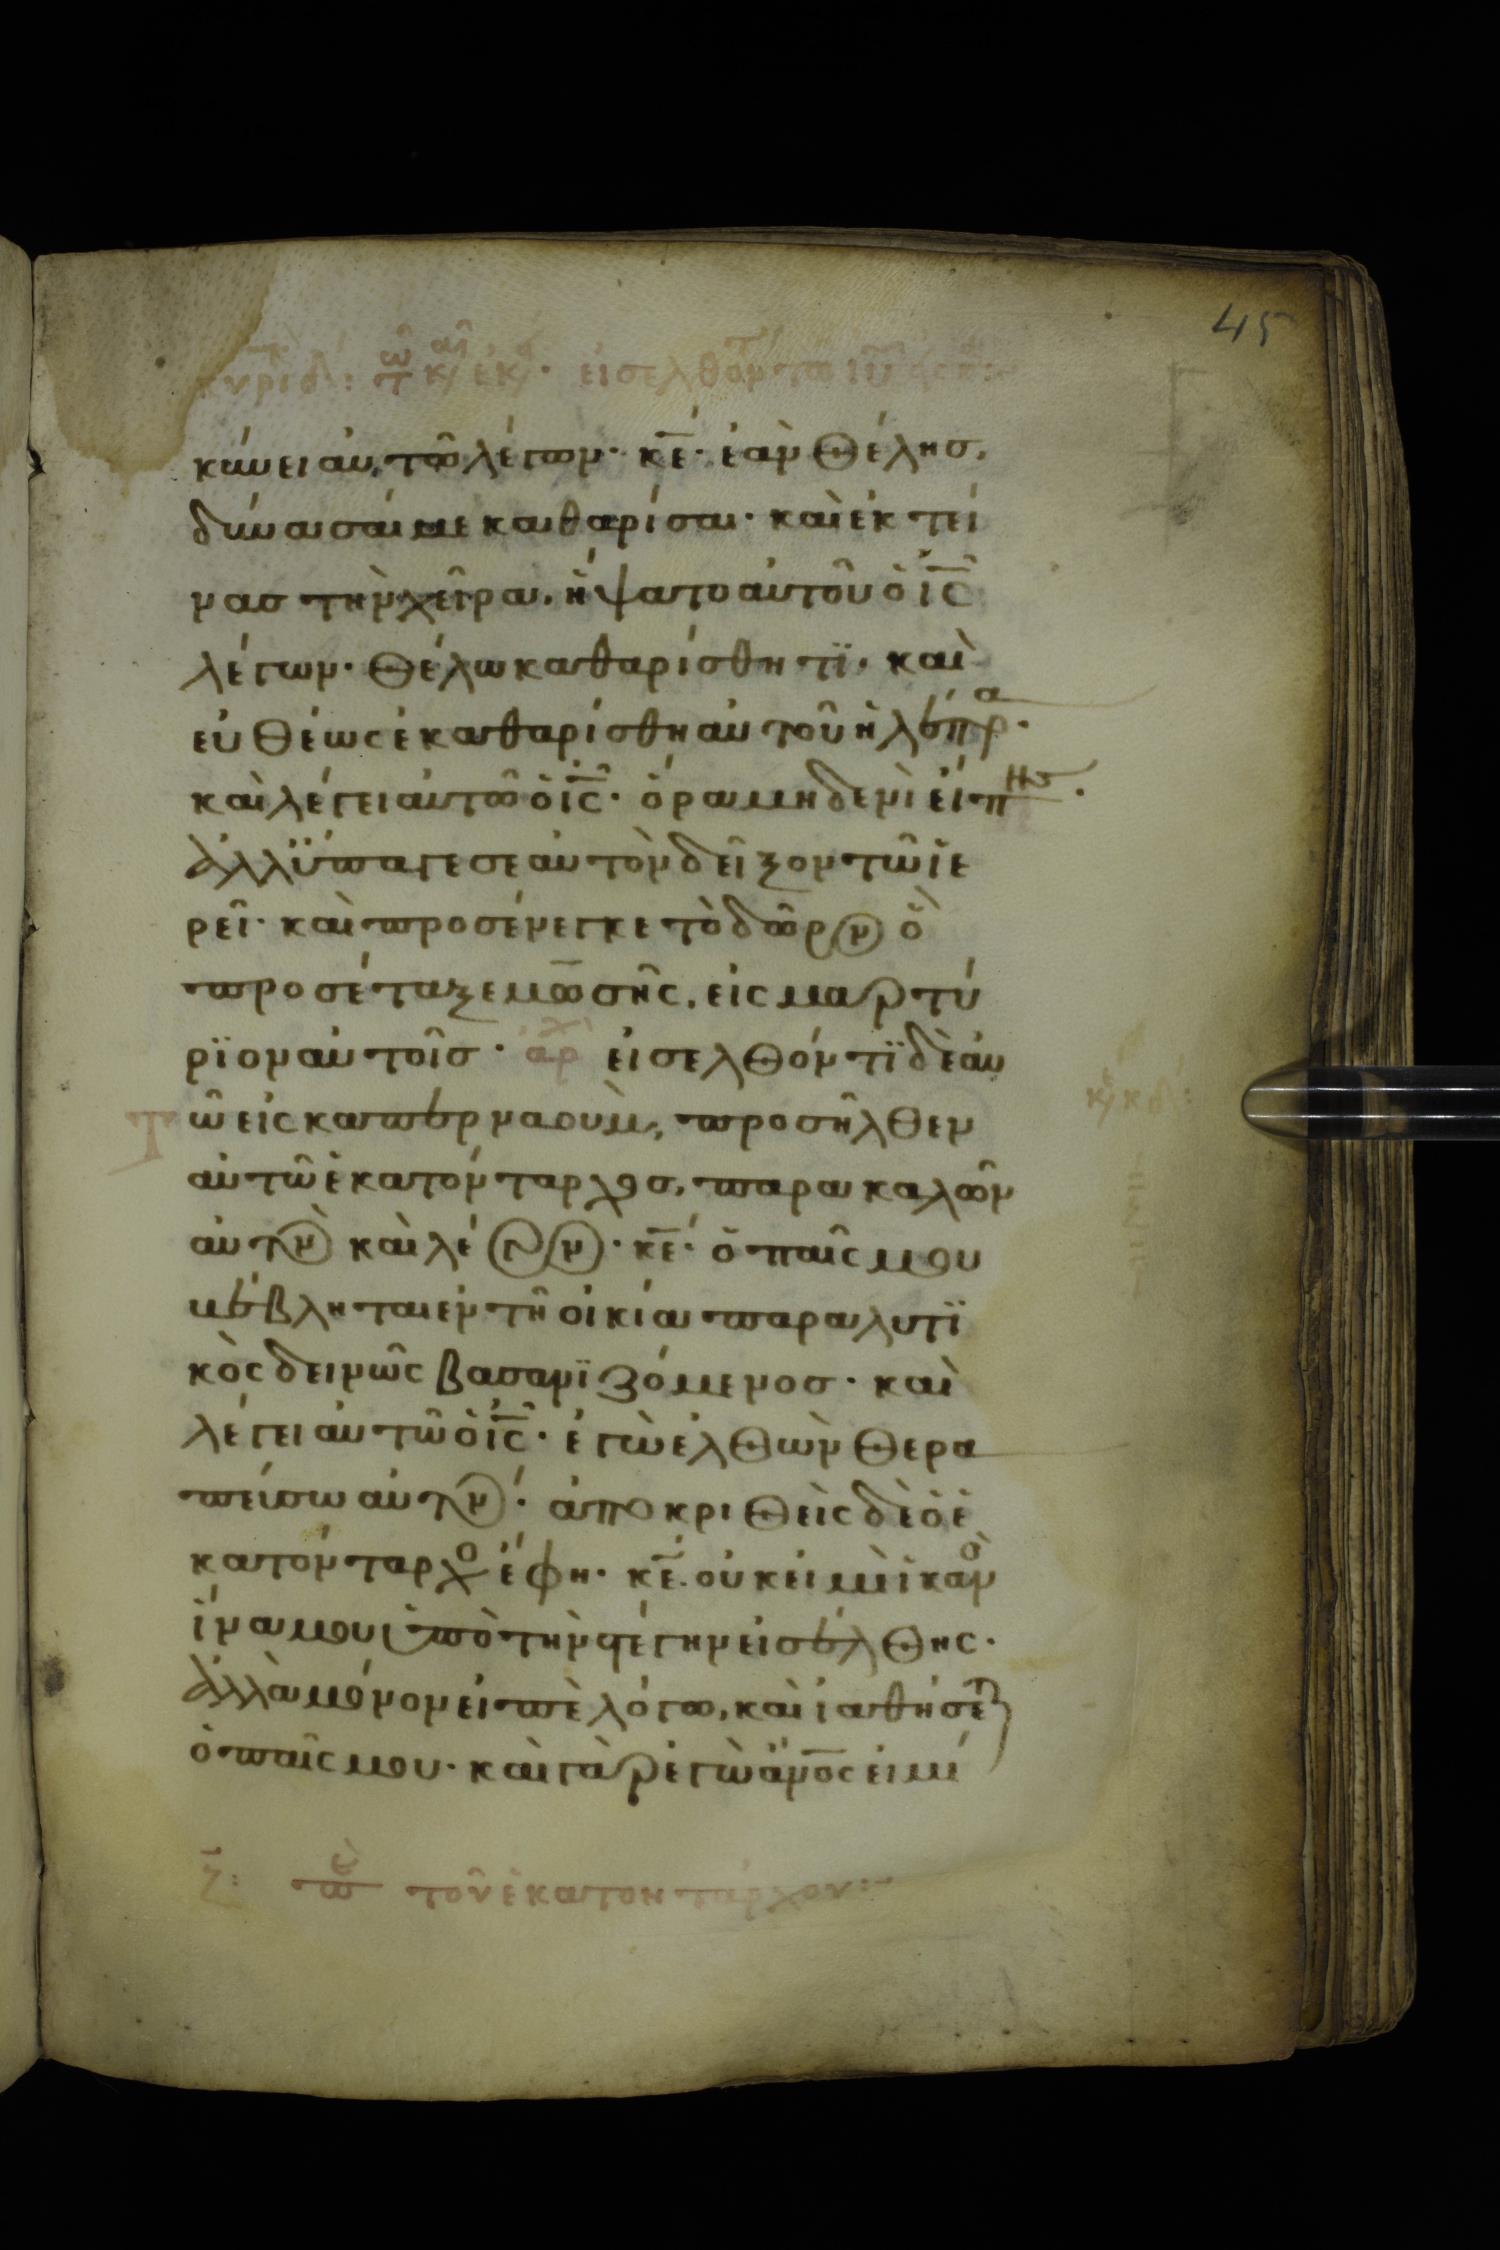 45
κύνει αὐτῶ λέγων· κ̅ε̅· ἐὰν θέλησ,
δύνασαί με καθαρίσαι· καὶ ἐκτεί
νασ τὴν χεῖρα, ἥψατο αὐτοῦ ὁ ἰ̅ς̅
λέγων· θέλω καθαρίσθητϊ· καὶ
εὐθέως ἐκαθαρίσθη αὐτοῦ ἡ λέπρα·
καὶ λέγει αὐτῶ ὁ ἰ̅ς̅· ὅρα μηδενὶ είπης·
ἀλλ ὕπαγε σεαυτὸν δεῖξον τῶ ἱε
ρεῖ· καὶ προσένεγκε τὸ δῶρον ὃ
προσέταξε μωσῆς, εἰς μαρτύ
ρϊον αὐτοῖσ· ἀρχ εἰσελθόντϊ δὲ αυ
Τῶ εἰς καπερναουμ, προσῆλθεν
αὐτῶ ἑκατόνταρχοσ, παρακαλῶν
αὐτὸν καὶ λέγον· κ̅ε̅· ὁ παῖς μου
βέβληται ἐν τῆ οἰκία παραλυτϊ
κὸς δεινῶς βασανϊζόμενοσ· καὶ
λέγει αὐτῶ ὁ ἰ̅ς̅· ἐγὼ ἐλθὼν θερα
πεύσω αὐτόν· ἀποκριθεὶς δὲ ὁ ἑ
κατόνταρχο ἔφη· κ̅ε̅· οὐκ εἰμὶ ἱκανὸ
ἵνα μου ὑπὸ τὴν στέγην εἰσέλθης·
ἀλλὰ μόνον εἰπὲ λόγω, καὶ ἰαθήσεται
ὁ παῖς μου· καὶ γὰρ ἐγὼ ἄν̅ο̅ς εἰμί
ζ: π τοῦ ἑκατοντάρχου: